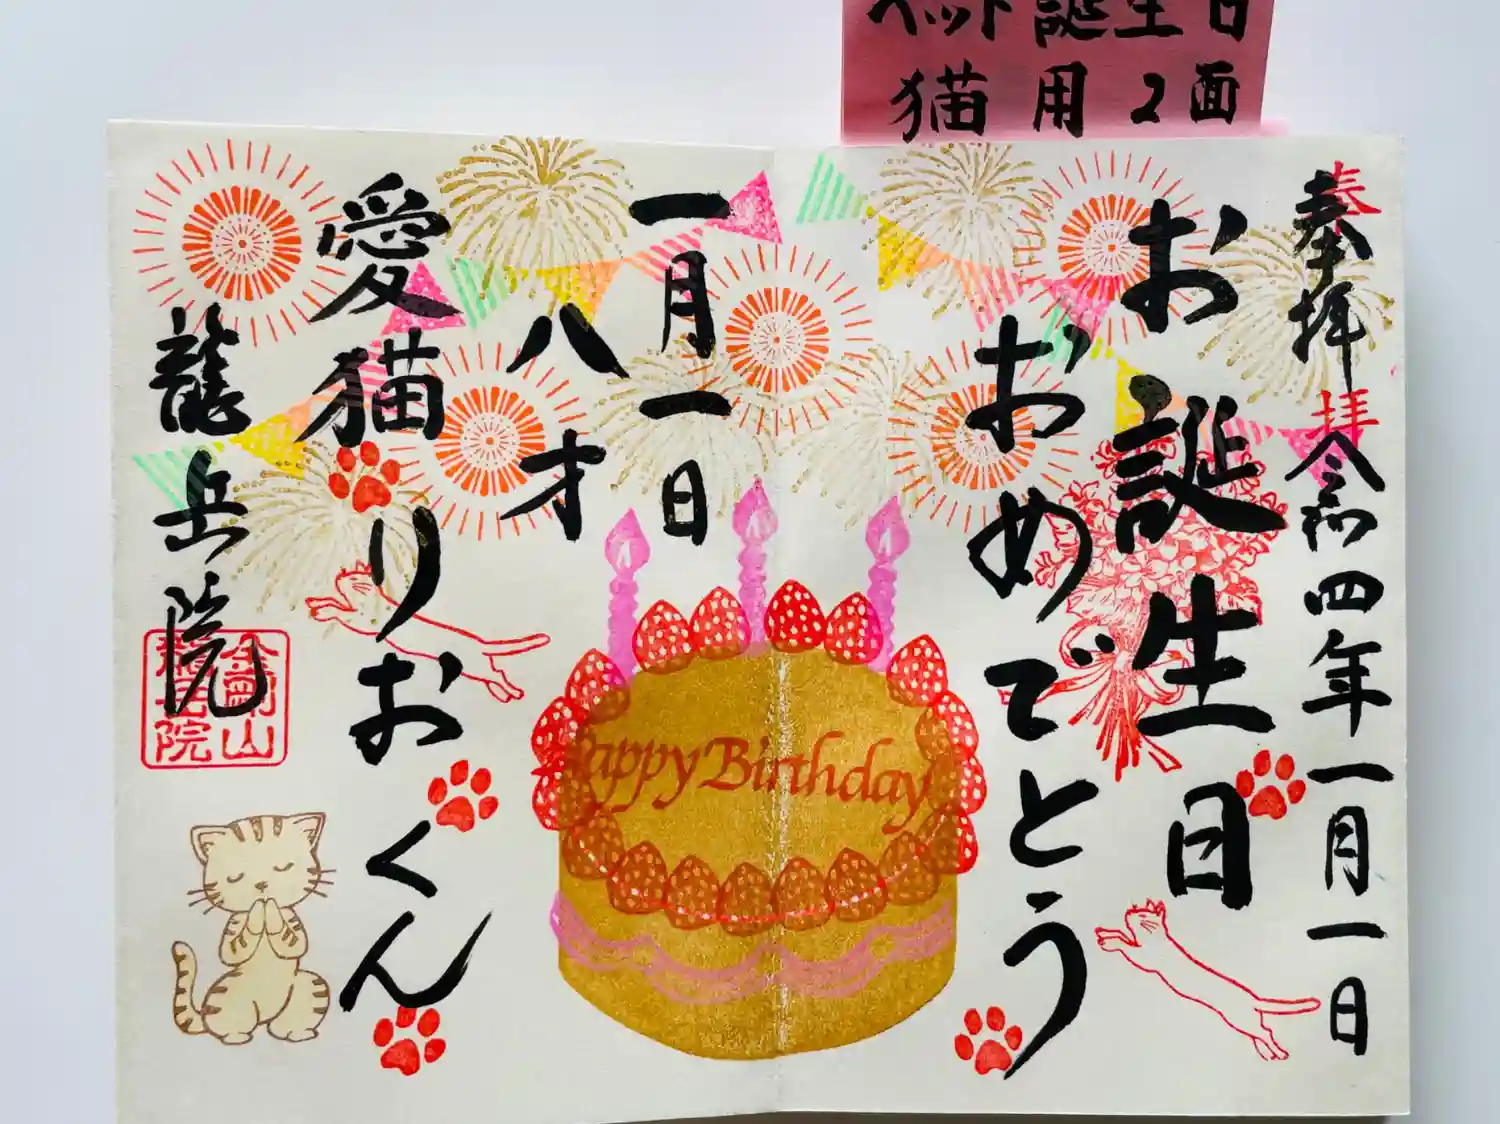 ペット誕生日
猫用2面
奉拝
奉拝
令和四年一月一日
お誕生日
おめでとう
一月一日
八才
愛猫りおくん
龍岳院
Happy Birthday